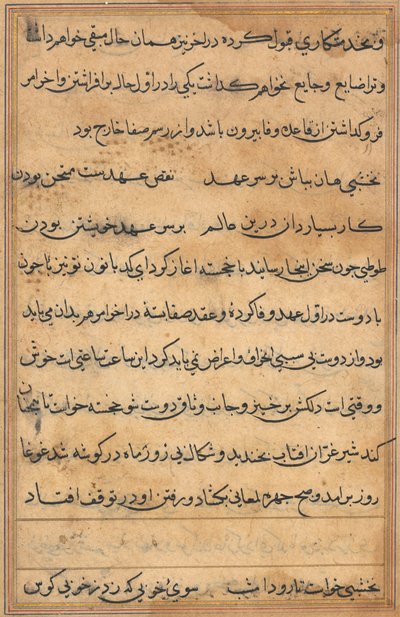 و بخدمتکاری قبول کرده در اخر نیز همان حال مبقی خواهم داشت
و ترا ضایع و جایع نخواهم گذاشت یکی را در اول حال برافراشتن و اخر امر
فروگذاشتن از قاعده وفا بیرون باشد و از رسم صفا خارج بود
نخشبی هان بباش بر سر عهد نقض عهدست ممتحن بودن
کار بسیار دان درین عالم بر سر عهد خویشتن بودن
طوطی چون سخن اینجا رسانید با خجسته اغاز کرد ای کدبانو تو نیز با چون
با دوست در اول عهد وفا کردۀ و عقد صفا بستۀ در اخر امر هم بدان می باید
بود و از دوست بی سببی انحراف و اعراض نمی باید کرد این ساعت ساعتی است خوش
و وقتی است دلکش برخیز و جانب وثاق دوست شو خجسته خواست تا همچنان
کند شیر غران افتاب بخندید و شکال بی زور ماه در گوشه شد غوغا
روز برامد و صبح چهره لمعانی بکشاد و رفتن او در توقف افتاد
نخشبی خواست تا رود امشب سوی خوبی که زد ز خوبی کوس